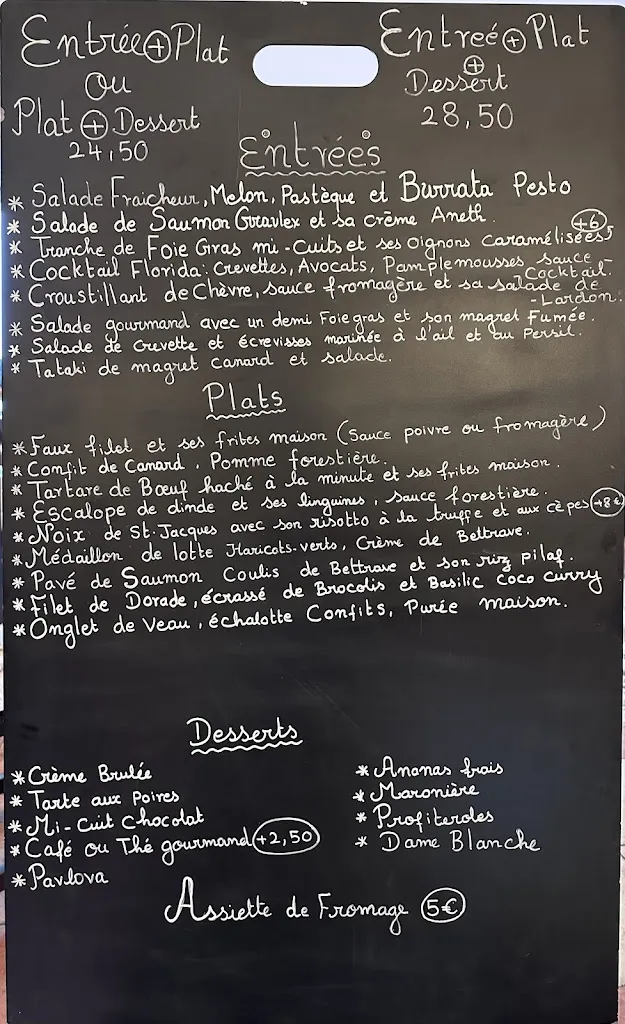 Entrée + Plat
ou
Plat + Dessert
24,50
Entreé + Plat
+
Dessert
28,50
Entrées
* Salade Fraicheur, Melon, Pastèque et Burrata Pesto
* Salade de Saumon Gravlex et sa crème Aneth.
* Tranche de Foie Gras mi-cuits et ses oignons caramélisées +6
* Cocktail Florida: Crevettes, Avocats, Pamplemousses, sauce
- Cocktail.
* Croustillant de Chèvre, sauce fromagère et sa salade de
- Lardon.
* Salade gourmand avec un demi Foie gras et son magret Fumée.
* Salade de Crevette et écrevisses marinée à l'ail et au Persil.
* Tataki de magret canard et salade.
Plats
* Faux filet et ses frites maison (Sauce poivre ou fromagère)
* Confit de Canard, Pomme forestière.
* Tartare de Bœuf haché à la minute et ses frites maison.
* Escalope de dinde et ses linguines, sauce forestière.
* Noix de St-Jacques avec son risotto à la truffe et aux cèpes +8€
* Médaillon de lotte Haricots-verts, Crème de Bettrave.
* Pavé de Saumon Coulis de Bettrave et son riz pilaf.
* Filet de Dorade, écrassé de Brocolis et Basilic coco curry
* Onglet de Veau, échalotte Confits, Purée maison.
Desserts
* Crème Brulée
* Tarte aux Poires
* Mi-Cuit Chocolat
* Café ou Thé gourmand +2,50
* Pavlova
* Ananas frais
* Maronière
* Profiteroles
* Dame Blanche
Assiette de Fromage 5€